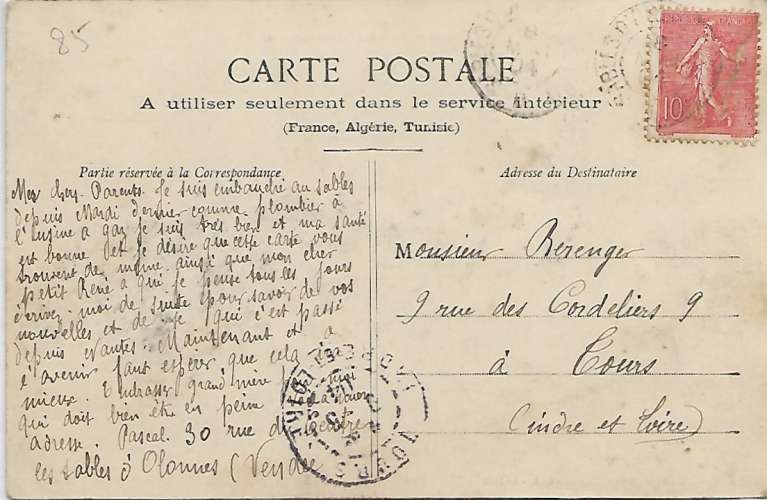 85
CARTE POSTALE
A utiliser seulement dans le service intérieur
(France, Algérie, Tunisie)
REPUBLIQUE FRANÇAISE
10
Partie réservée à la Correspondance
Mes chers Parents. Je suis embauché au Sables
depuis Mardi dernier comme plombier à
l'usine a gaz je suis très bien et ma santé
est bonne et je désire que cette carte vous
trouvent de même ainsi que mon cher
petit René a qui je pense tous les jours
écrivez-moi de suite pour savoir de vos
nouvelles et de ce qui c'est passé
depuis Nantes. Maintenant et à
l'avenir faut espérer que cela
mieux. Embrasser grand mère pour moi
qui doit bien être en peine
adresse. Pascal. 30 rue du Centre
les Sables d'Olonnes (Vendée
Adresse du Destinataire
Monsieur Berenger
9 rue des Cordeliers 9
à Tours
(indre et Loire)
TOURS
INDRE ET LOIRE